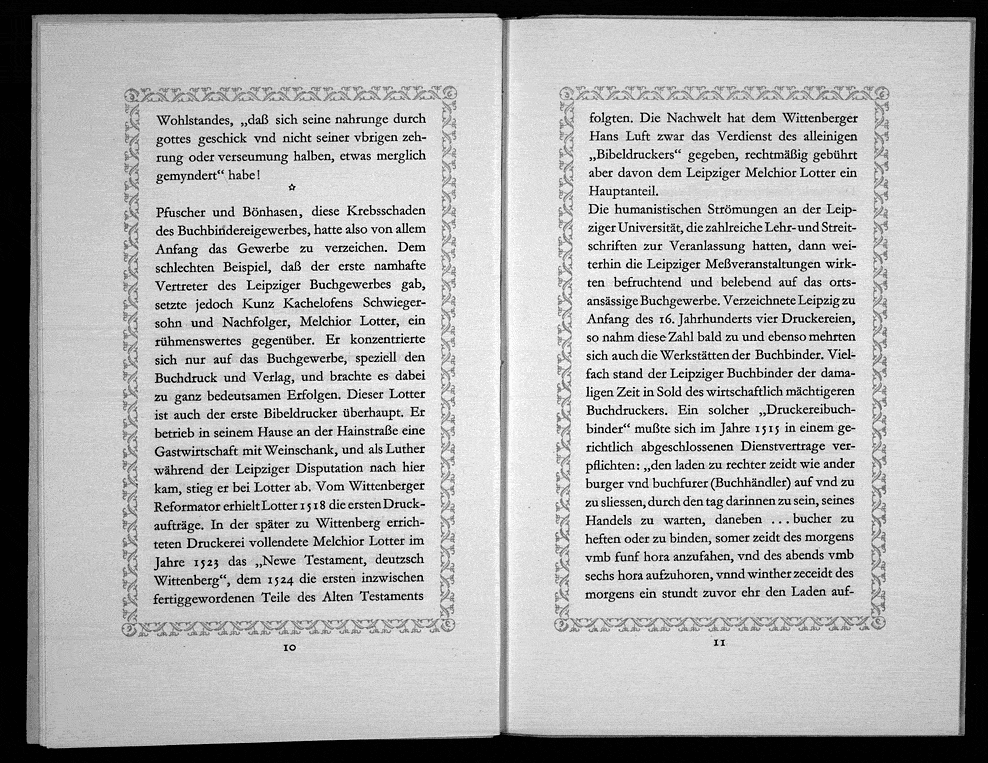 Wohlstandes, „daß sich seine nahrunge durch
gottes geschick vnd nicht seiner vbrigen zeh-
rung oder verseumung halben, etwas merglich
gemyndert“ habe!
☆
Pfuscher und Bönhasen, diese Krebsschaden
des Buchbindereigewerbes, hatte also von allem
Anfang das Gewerbe zu verzeichen. Dem
schlechten Beispiel, daß der erste namhafte
Vertreter des Leipziger Buchgewerbes gab,
setzte jedoch Kunz Kachelofens Schwieger-
sohn und Nachfolger, Melchior Lotter, ein
rühmenswertes gegenüber. Er konzentrierte
sich nur auf das Buchgewerbe, speziell den
Buchdruck und Verlag, und brachte es dabei
zu ganz bedeutsamen Erfolgen. Dieser Lotter
ist auch der erste Bibeldrucker überhaupt. Er
betrieb in seinem Hause an der Hainstraße eine
Gastwirtschaft mit Weinschank, und als Luther
während der Leipziger Disputation nach hier
kam, stieg er bei Lotter ab. Vom Wittenberger
Reformator erhielt Lotter 1518 die ersten Druck-
aufträge. In der später zu Wittenberg errich-
teten Druckerei vollendete Melchior Lotter im
Jahre 1523 das „Newe Testament, deutzsch
Wittenberg“, dem 1524 die ersten inzwischen
fertiggewordenen Teile des Alten Testaments
10
folgten. Die Nachwelt hat dem Wittenberger
Hans Luft zwar das Verdienst des alleinigen
„Bibeldruckers“ gegeben, rechtmäßig gebührt
aber davon dem Leipziger Melchior Lotter ein
Hauptanteil.
Die humanistischen Strömungen an der Leip-
ziger Universität, die zahlreiche Lehr- und Streit-
schriften zur Veranlassung hatten, dann wei-
terhin die Leipziger Meßveranstaltungen wirk-
ten befruchtend und belebend auf das orts-
ansässige Buchgewerbe. Verzeichnete Leipzig zu
Anfang des 16. Jahrhunderts vier Druckereien,
so nahm diese Zahl bald zu und ebenso mehrten
sich auch die Werkstätten der Buchbinder. Viel-
fach stand der Leipziger Buchbinder der dama-
ligen Zeit in Sold des wirtschaftlich mächtigeren
Buchdruckers. Ein solcher „Druckereibuch-
binder“ mußte sich im Jahre 1515 in einem ge-
richtlich abgeschlossenen Dienstvertrage ver-
pflichten: „den laden zu rechter zeidt wie ander
burger vnd buchfurer (Buchhändler) auf vnd zu
zu sliessen, durch den tag darinnen zu sein, seines
Handels zu warten, daneben ... bucher zu
heften oder zu binden, somer zeidt des morgens
vmb funf hora anzufahen, vnd des abends vmb
sechs hora aufzuhoren, vnnd winther zeceidt des
morgens ein stundt zuvor ehr den Laden auf-
11